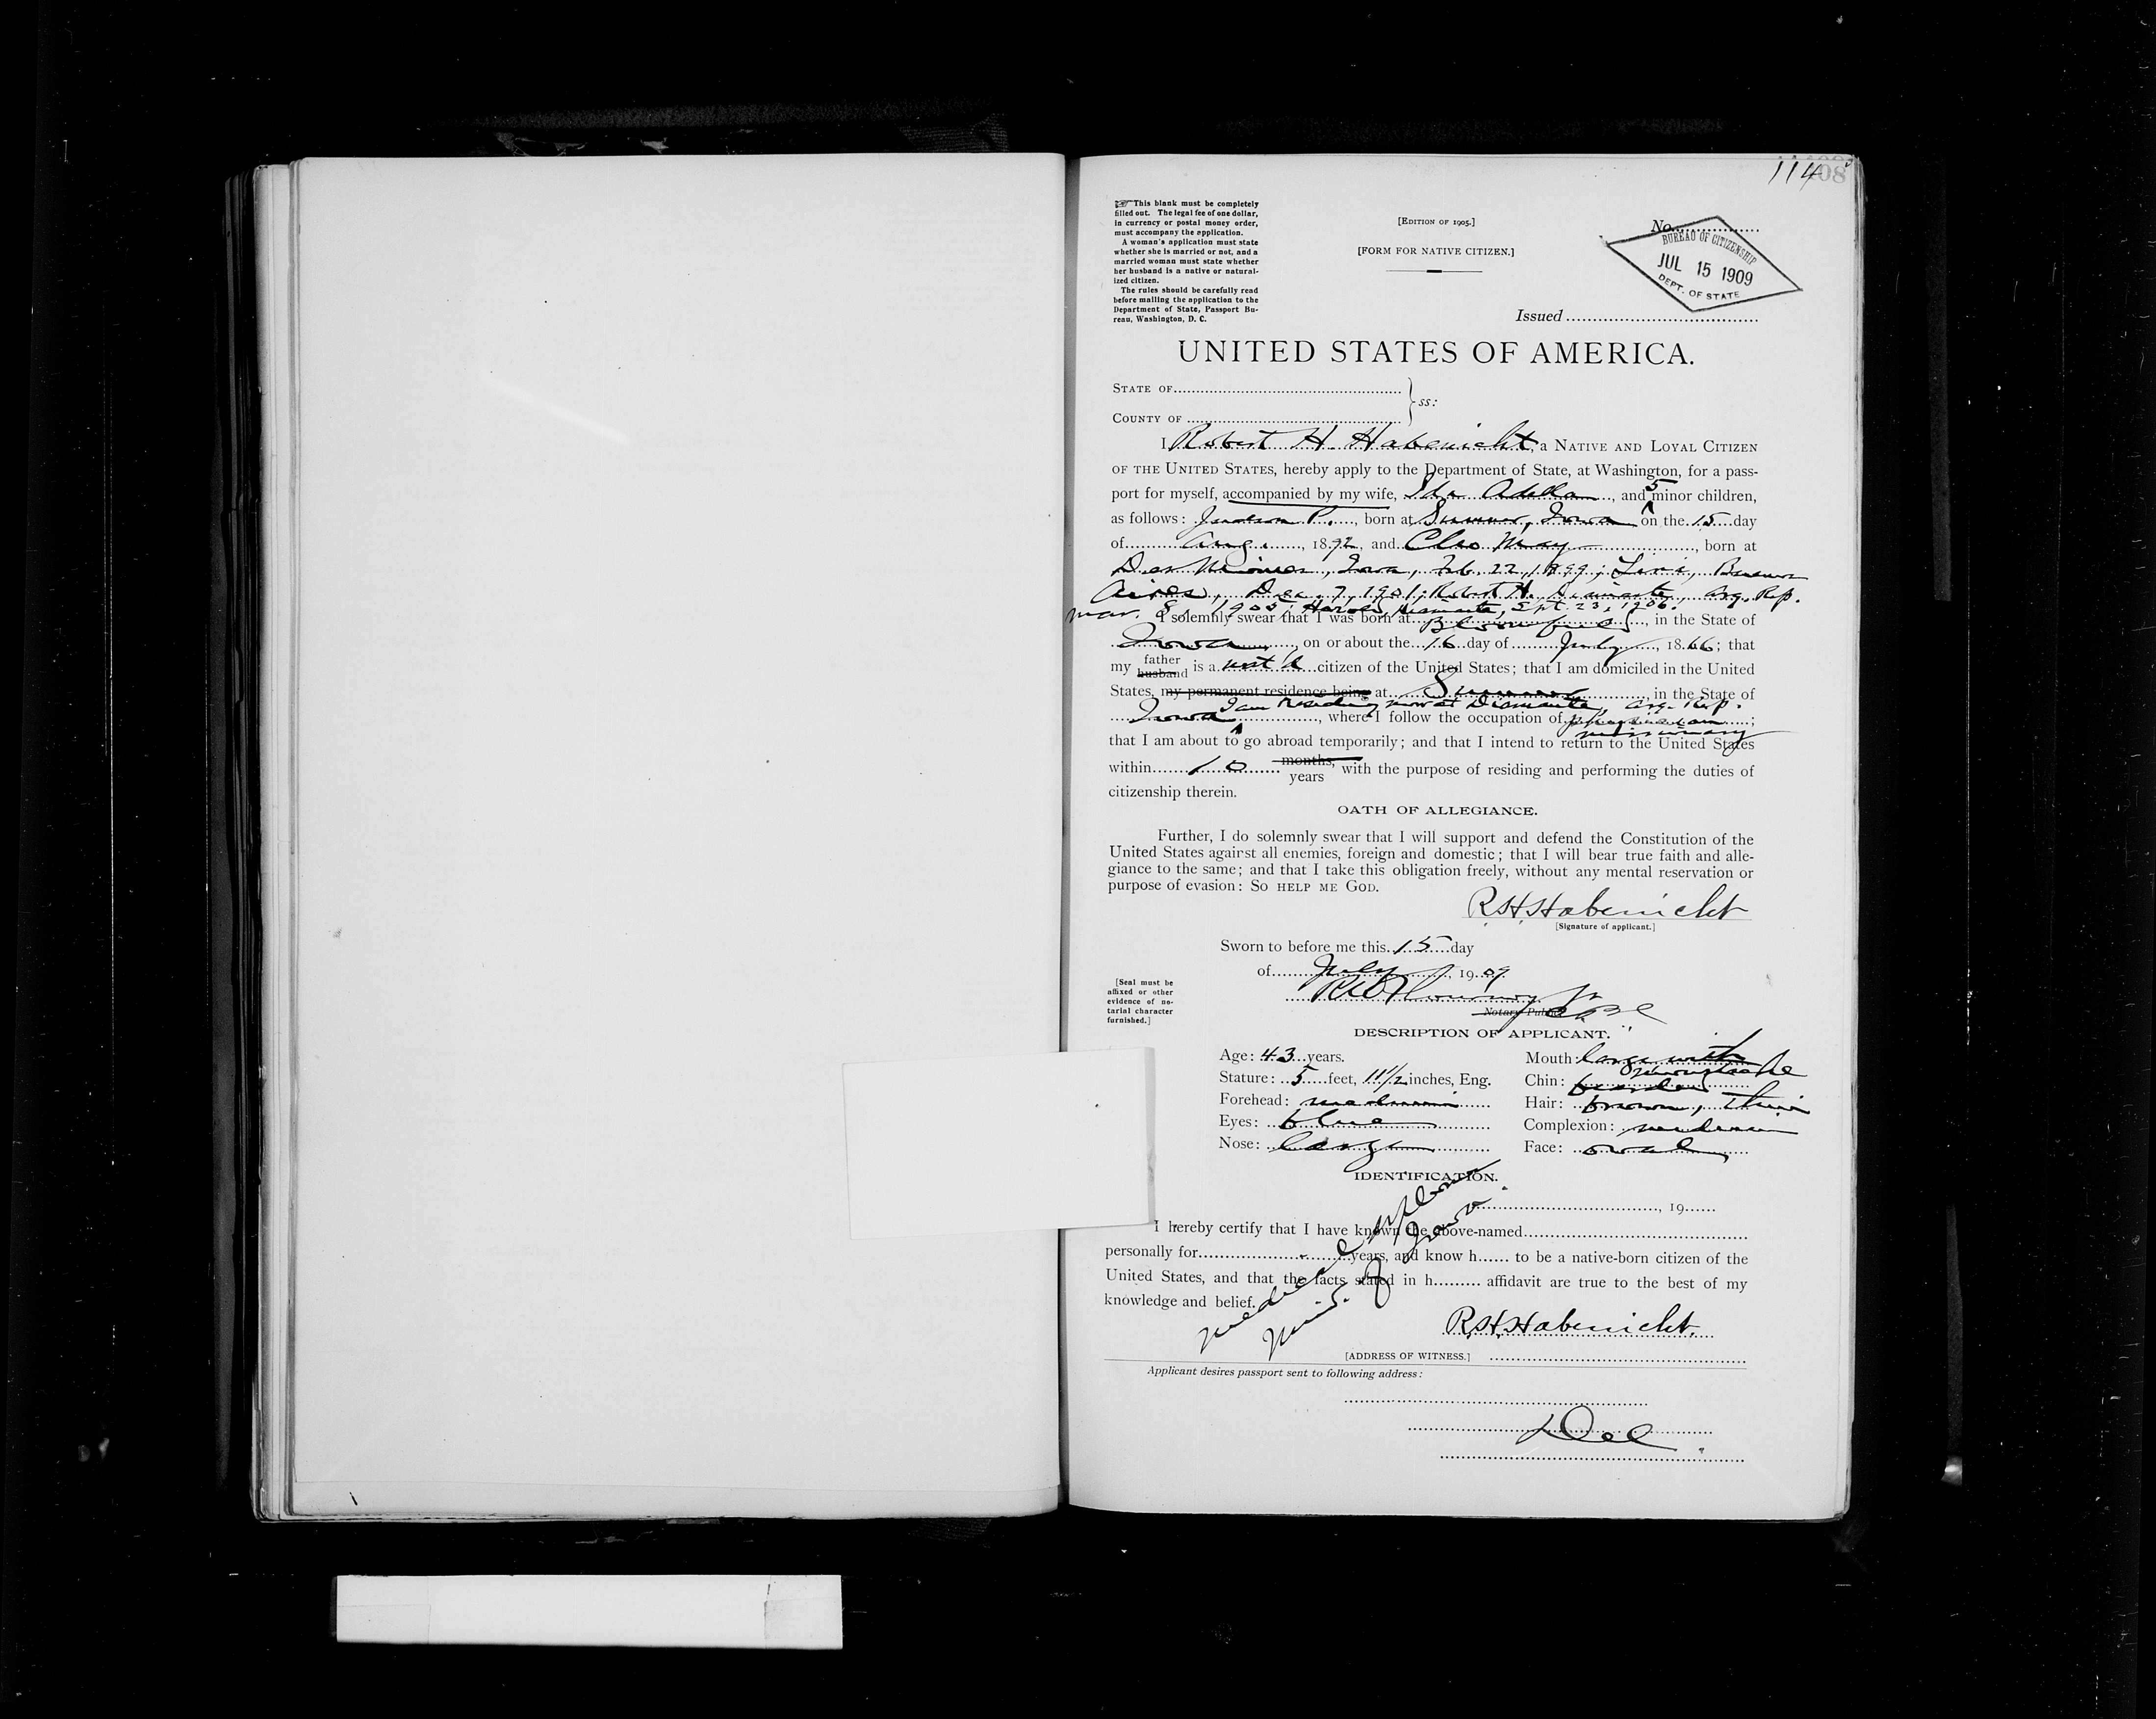 114
08
☞ This blank must be completely
filled out. The legal fee of one dollar,
in currency or postal money order,
must accompany the application.
A woman's application must state
whether she is married or not, and a
married woman must state whether
her husband is a native or natural-
ized citizen.
The rules should be carefully read
before mailing the application to the
Department of State, Passport Bu-
reau, Washington, D. C.
[EDITION OF 1905.]
[FORM FOR NATIVE CITIZEN.]
No.
BUREAU OF CITIZENSHIP
JUL 15 1909
DEPT. OF STATE
Issued
UNITED STATES OF AMERICA.
STATE OF
COUNTY OF
ss:
I, Robert H. Habenicht, a NATIVE AND LOYAL CITIZEN
OF THE UNITED STATES, hereby apply to the Department of State, at Washington, for a pass-
port for myself, accompanied by my wife, Ida Adella, and 5 minor children,
as follows: Judson P., born at Sumner, Iowa on the 15 day
of Aug., 1892, and Cleo May, born at
Des Moines, Iowa, Feb. 22, 1899; Buenos
Aires, Dec. 7, 1901; Robert H. Diamante, Arg. Rep.
Mar. 8, 1905; Harold, Diamante, Sept. 23, 1906.
I solemnly swear that I was born at Bloomfield, in the State of
Iowa, on or about the 16 day of July, 1866; that
my father husband is a citizen of the United States; that I am domiciled in the United
States, my permanent residence being at Sumner, in the State of
I am residing now at Diamante, Arg. Rep.
Iowa, where I follow the occupation of physician
missionary
that I am about to go abroad temporarily; and that I intend to return to the United States
within 10 months, years with the purpose of residing and performing the duties of
citizenship therein.
OATH OF ALLEGIANCE.
Further, I do solemnly swear that I will support and defend the Constitution of the
United States against all enemies, foreign and domestic; that I will bear true faith and alle-
giance to the same; and that I take this obligation freely, without any mental reservation or
purpose of evasion: SO HELP ME GOD.
R.H. Habenicht
[Signature of applicant.]
Sworn to before me this 15 day
of July, 1909
[Seal must be
affixed or other
evidence of no-
tarial character
furnished.]
R W Flournoy Jr
Notary Public.
DESCRIPTION OF APPLICANT.
Age: 43 years.
Stature: 5 feet, 11½ inches, Eng.
Forehead: medium
Eyes: blue
Nose: large
Mouth: large with
moustache
Chin:
Hair: brown, thin
Complexion: medium
Face: oval
IDENTIFICATION.
, 19
I hereby certify that I have known the above-named
personally for years, and know h to be a native-born citizen of the
United States, and that the facts stated in h affidavit are true to the best of my
knowledge and belief.
medical diploma
Univ. of Iowa.
R.H. Habenicht.
[ADDRESS OF WITNESS.]
Applicant desires passport sent to following address:
Del